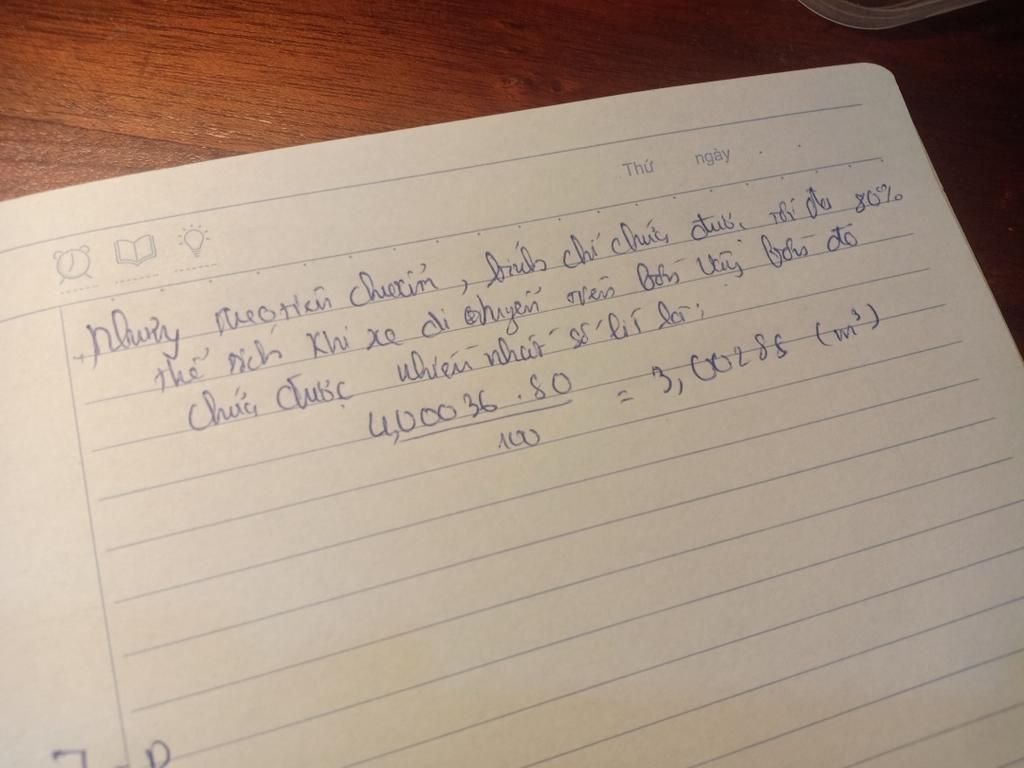 Thứ ngày
Nhưng theo tiêu chuẩn, bình chỉ chứa được tối đa 80%
thể tích khi xe di chuyển nên bồn Vậy bồn đó
chứa được nhiên nhất số lít là:
4,00036 . 80 / 100 = 3,00288 (m³)